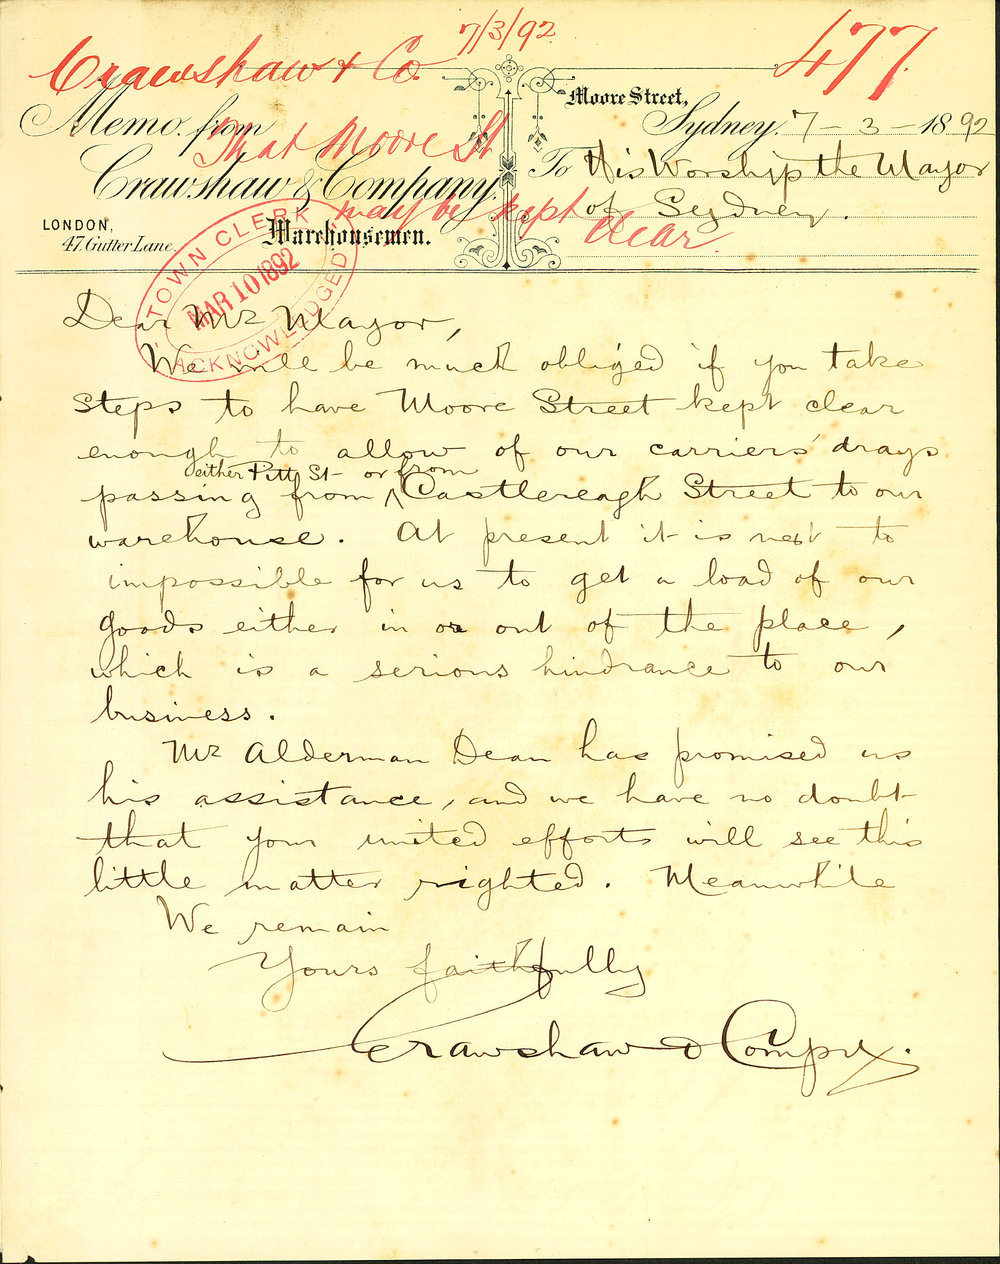 7/3/92
Crawshaw & Co
477
Memo. from
That Moore St
may be kept
clear
Crawshaw & Company,
Warehousemen.
LONDON,
47. Gutter Lane.
Moore Street,
Sydney, 7 - 3 - 1892
To His Worship the Mayor
of Sydney.
TOWN CLERK
MAR 10 1892
ACKNOWLEDGED
Dear Mr Mayor,
We will be much obliged if you take
steps to have Moore Street kept clear
enough to allow of our carriers' drays
either Pitt St or from
passing from ^ Castlereagh Street to our
warehouse. At present it is next to
impossible for us to get a load of our
goods either in or out of the place,
which is a serious hindrance to our
business.
Mr Alderman Dean has promised us
his assistance, and we have no doubt
that your united efforts will see this
little matter righted. Meanwhile
We remain
Yours faithfully
Crawshaw & Compy.